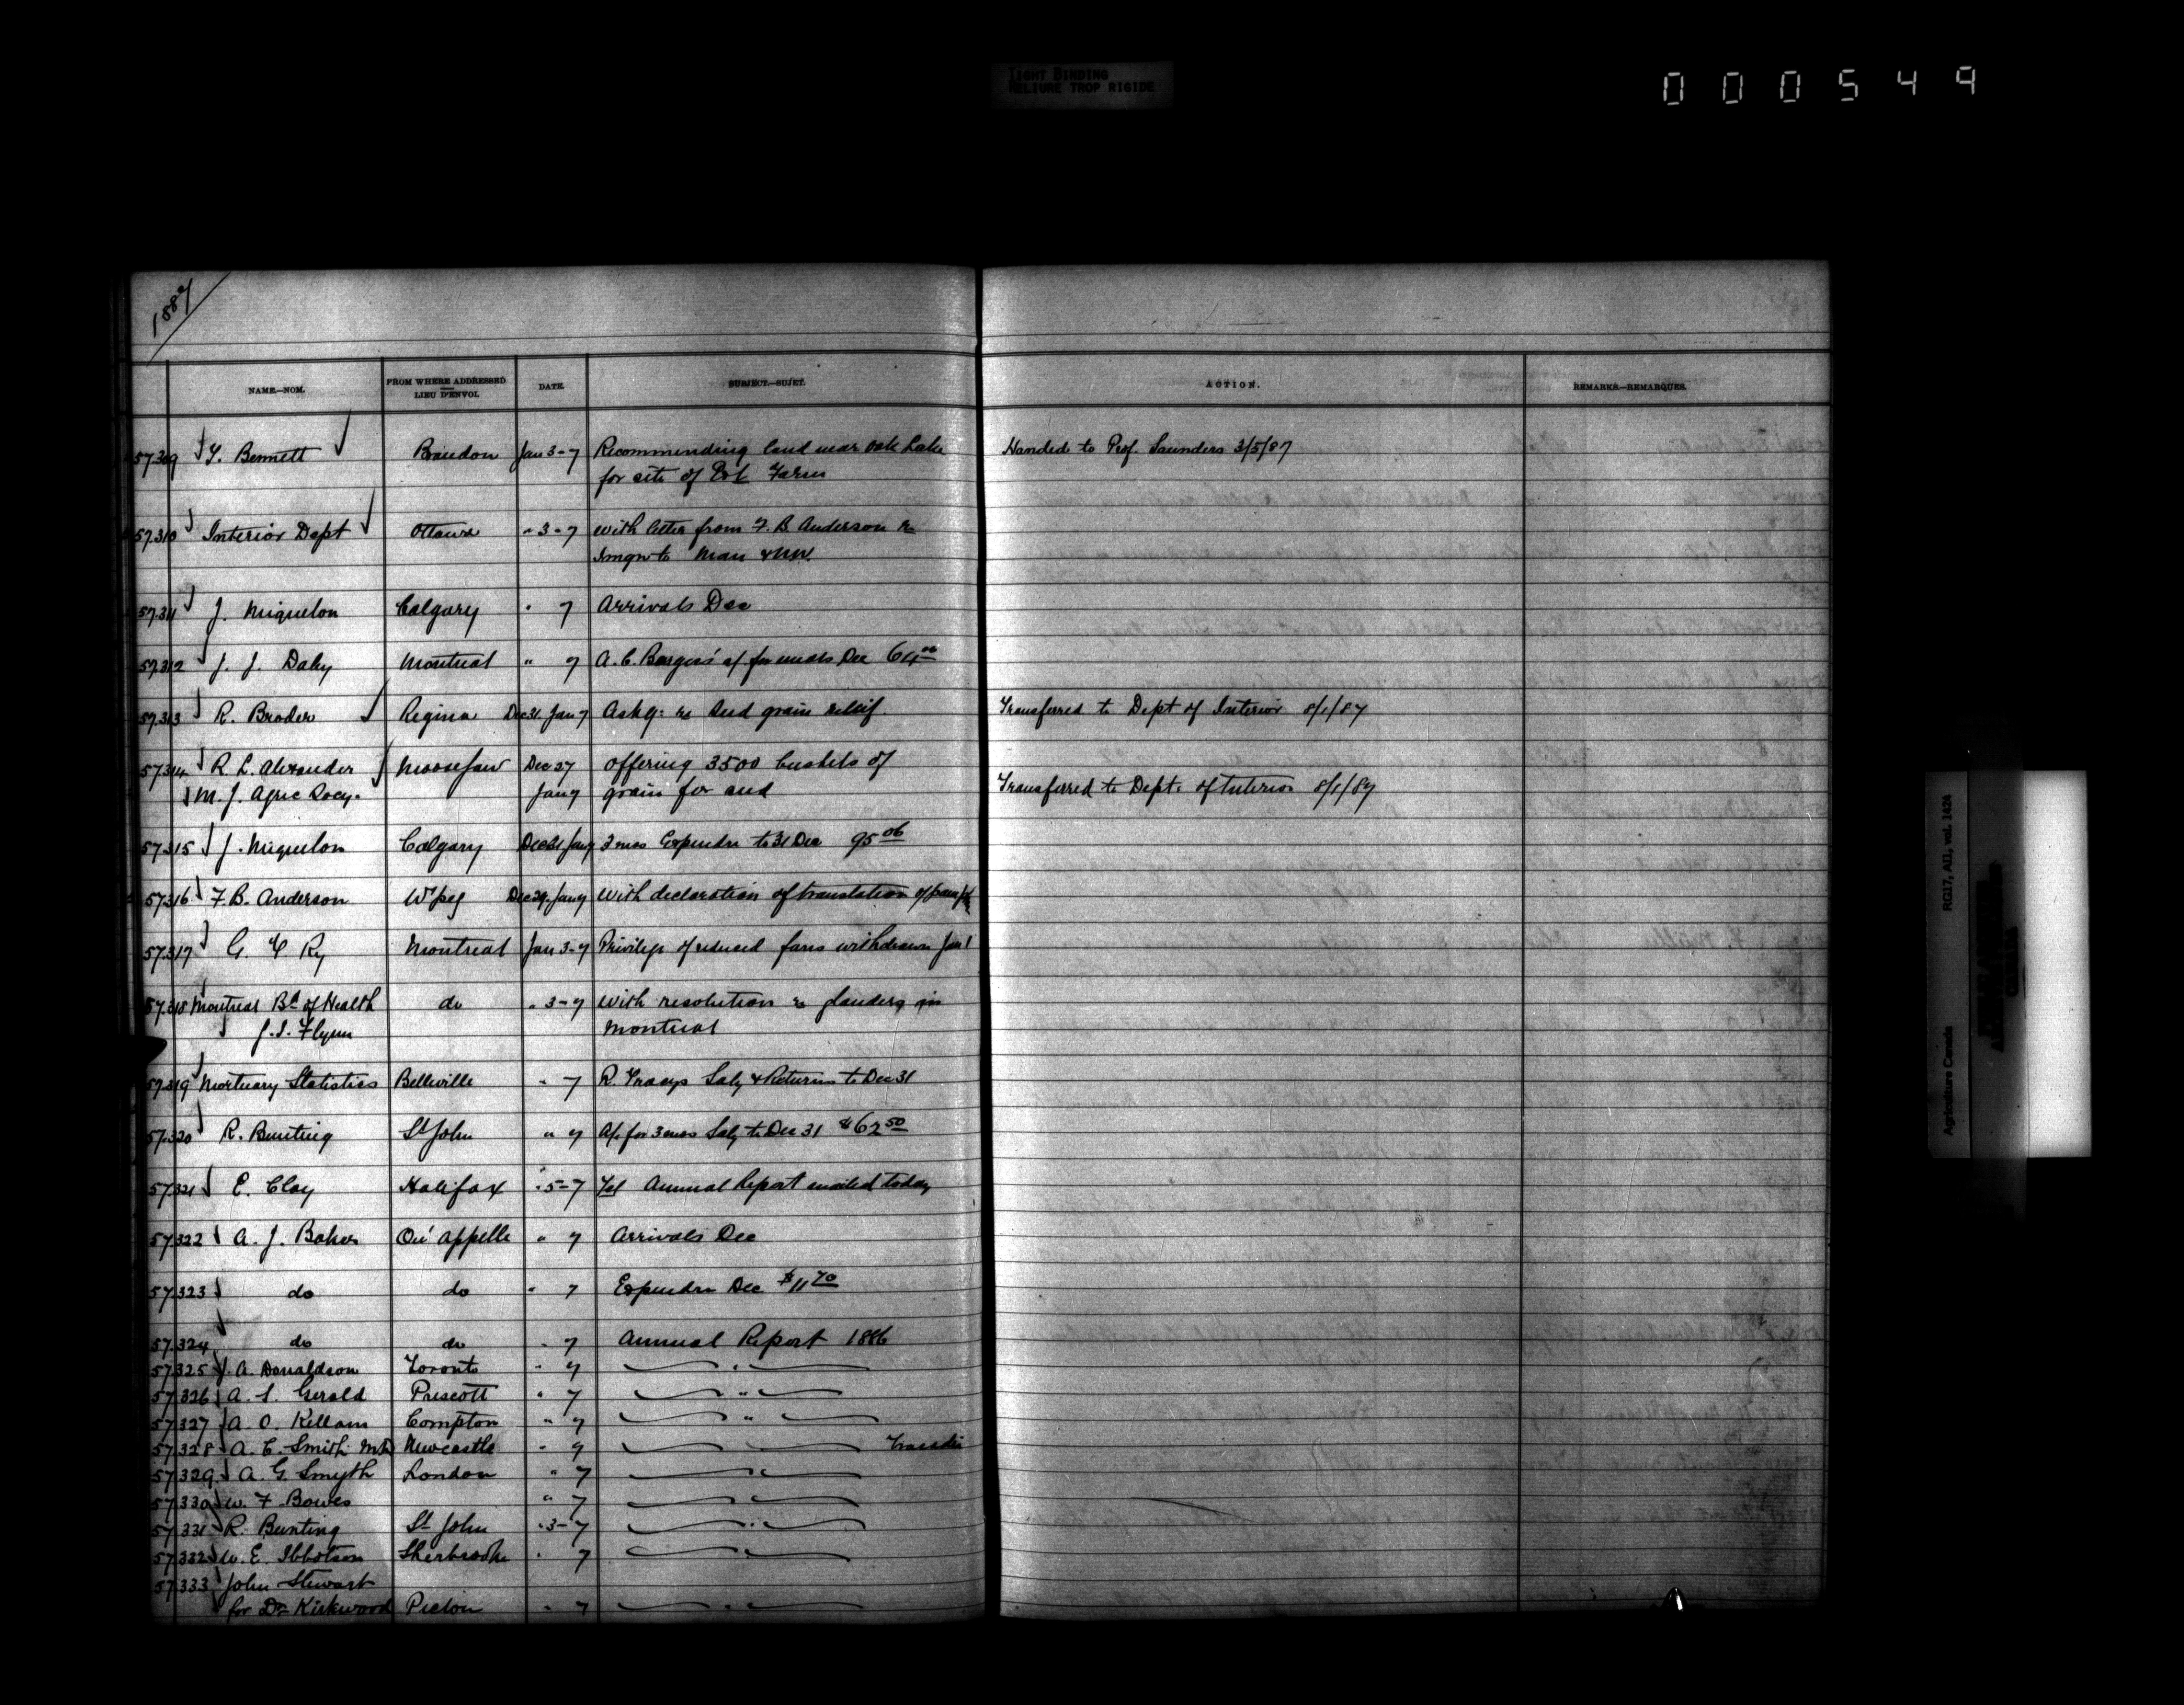 TIGHT BINDING
RELIURE TROP RIGIDE
000549
1887
NAME.—NOM. FROM WHERE ADDRESSED LIEU D'ENVOI. DATE. SUBJECT.—SUJET. ACTION. REMARKS.—REMARQUES.
57.309 T. Bennett Brandon Jan 3-7 Recommending land near Oak Lake Handed to Prof. Saunders 3/5/87
for site of Exl Farm
57.310 Interior Dept Ottawa " 3-7 with letter from F. B. Anderson re
Imgn to Man & NW.
57.311 J. Miquelon Calgary " 7 Arrivals Dec
57.312 J. J. Daley Montreal " 7 A. C. a/c for meals Dec 64.00
57.313 R. Broder Regina Dec 31. Jan 7 Askg: re Seed grain relief Transferred to Dept of Interior 8/1/87
57.314 R. L. Alexander Moosejaw Dec 27 Offering 3500 bushels of
M. J. Agric Socy. Jan 7 grain for seed Transferred to Dept. of Interior 8/1/87
57.315 J. Miquelon Calgary Dec 31 Jan 7 3 mos Expendre to 31 Dec 95 06
57.316 F. B. Anderson Wpeg Dec 29. Jan 7 With declaration of translation of
57.317 G. T Ry Montreal Jan 3-7 Privilege of reduced fares withdrawn Jan 1
57.318 Montreal Bd of Health do " 3-7 With resolution re glanders in
J. I. Flynn Montreal
57.319 Mortuary Statistics Belleville " 7 R. Tracys Saly & Returns to Dec 31
57.320 R. Bunting St John " 7 A/c for 3 mos Saly to Dec 31 $62 50
57.321 E. Clay Halifax " 5-7 Tel Annual Report mailed today
57.322 A. J. Baker Qu'appelle " 7 Arrivals Dec
57.323 do do " 7 Expendre Dec $11 70
57.324 do do " 7 Annual Report 1886
57.325 J. A. Donaldson Toronto " 7 "
57.326 A. S. Gerald Prescott " 7 "
57.327 A. O. Kellam Compton " 7 "
57.328 A. C. Smith MD Newcastle " 7 "
57.329 A. G. Smyth London " 7 "
57.330 W. F. Bowes " 7 "
57.331 R. Bunting St John " 3-7 "
57.332 W. E. Ibbotson Sherbrooke " 7 "
57.333 John Stewart
for Dr Kirkwood Pictou " 7 "
Agriculture Canada RG17, AII, vol. 1424